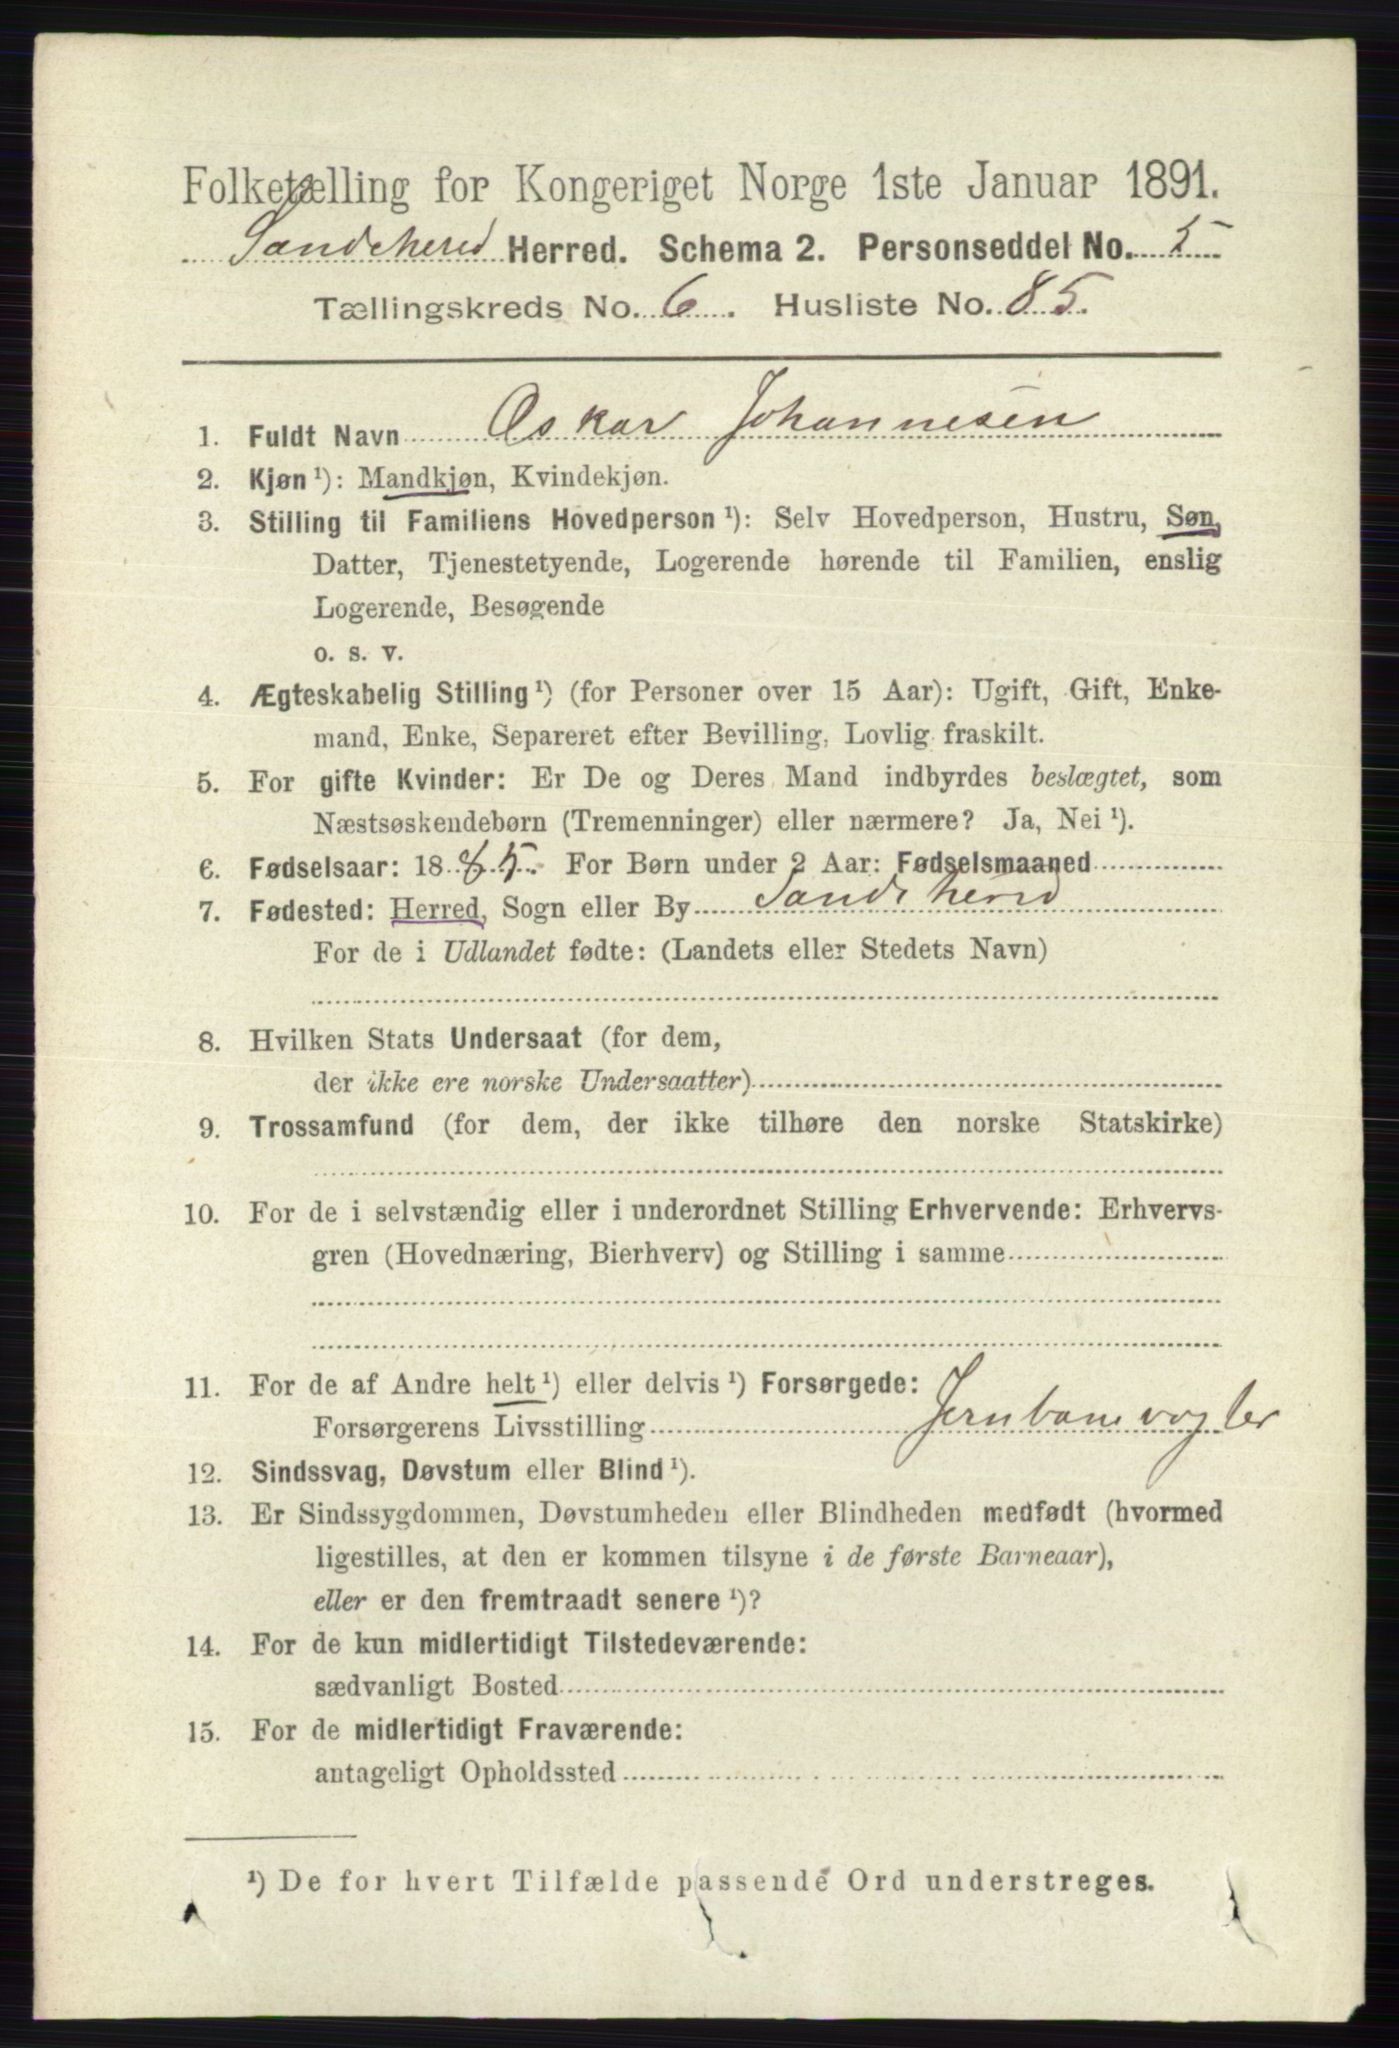 Folketælling for Kongeriget Norge 1ste Januar 1891.
Sandeherred Herred. Schema 2. Personseddel No. 5
Tællingskreds No. 6. Husliste No. 85.
1. Fuldt Navn Oskar Johannesen
2. Kjøn¹): Mandkjøn, Kvindekjøn.
3. Stilling til Familiens Hovedperson¹): Selv Hovedperson, Hustru, Søn,
Datter, Tjenestetyende, Logerende hørende til Familien, enslig
Logerende, Besøgende
o. s. v.
4. Ægteskabelig Stilling¹) (for Personer over 15 Aar): Ugift, Gift, Enke-
mand, Enke, Separeret efter Bevilling, Lovlig fraskilt.
5. For gifte Kvinder: Er De og Deres Mand indbyrdes beslægtet, som
Næstsøskendebørn (Tremenninger) eller nærmere? Ja, Nei¹).
6. Fødselsaar: 1885. For Børn under 2 Aar: Fødselsmaaned
7. Fødested: Herred, Sogn eller By Sandeherred
For de i Udlandet fødte: (Landets eller Stedets Navn)
8. Hvilken Stats Undersaat (for dem,
der ikke ere norske Undersaatter)
9. Trossamfund (for dem, der ikke tilhøre den norske Statskirke)
10. For de i selvstændig eller i underordnet Stilling Erhvervende: Erhvervs-
gren (Hovednæring, Bierhverv) og Stilling i samme
11. For de af Andre helt¹) eller delvis¹) Forsørgede:
Forsørgerens Livsstilling Jernbanevogter
12. Sindssvag, Døvstum eller Blind¹).
13. Er Sindssygdommen, Døvstumheden eller Blindheden medfødt (hvormed
ligestilles, at den er kommen tilsyne i de første Barneaar),
eller er den fremtraadt senere¹)?
14. For de kun midlertidigt Tilstedeværende:
sædvanligt Bosted
15. For de midlertidigt Fraværende:
antageligt Opholdssted
¹) De for hvert Tilfælde passende Ord understreges.